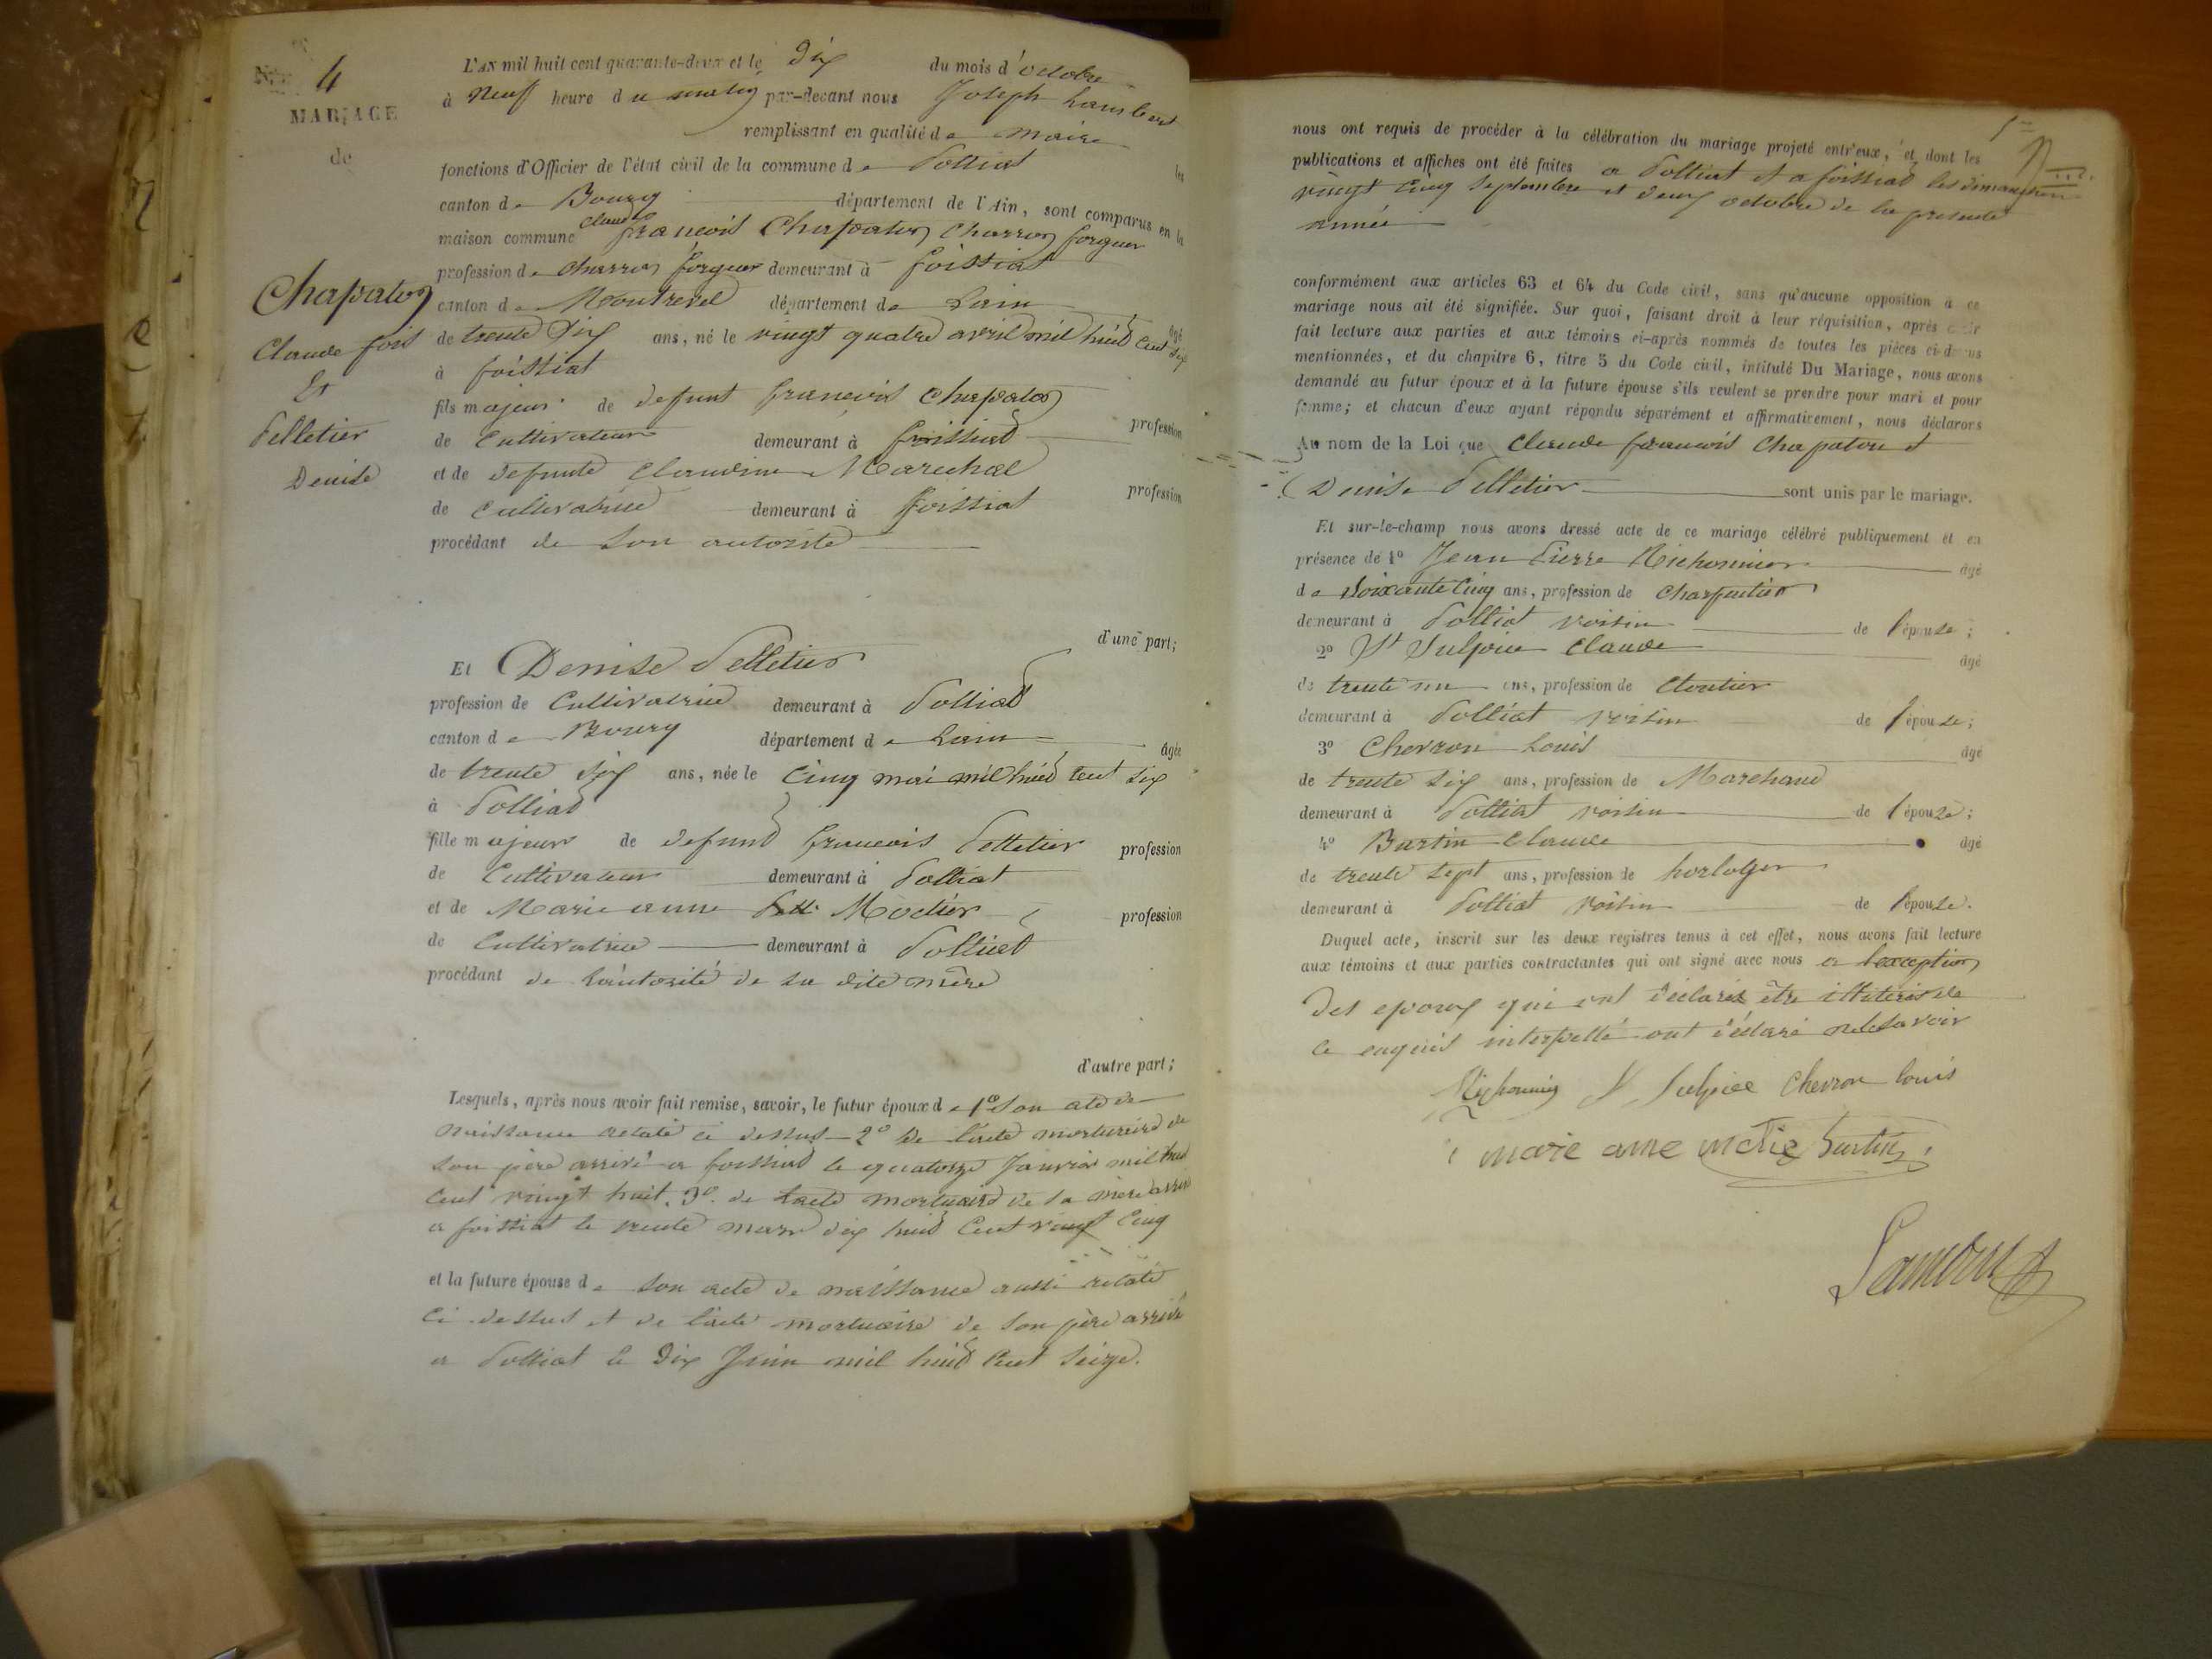 N.° 4
MARIAGE
de
Chapaton
Claude fois
Et
Pelletier
Denise
L'AN mil huit cent quarante-deux et le dix du mois d'octobre
à neuf heure du matin par-devant nous Joseph Lambert
remplissant en qualité de maire les
fonctions d'Officier de l'état civil de la commune de Polliat
canton de Bourg département de l'Ain, sont comparus en la
maison commune claude francois Chapaton Charron forgeur
profession de charron forgeur demeurant à foissiat
canton de Montrevel département de Lain âgé
de trente six ans, né le vingt quatre avril mil huit cent six
à foissiat
fils majeur de defunt francois Chapaton profession
de Cultivateur demeurant à foissiat
et de defunte Claudine Marechal profession
de Cultivatrice demeurant à foissiat
procédant de son autorité
d'une part;
Et Denise Pelletier
profession de Cultivatrice demeurant à Polliat
canton de Bourg département de Lain âgée
de trente six ans, née le cinq mai mil huit cent six
à Polliat
fille majeur de defunt francois Pelletier profession
de Cultivateur demeurant à Polliat
et de Marie anne Moctier profession
de Cultivatrice demeurant à Polliat
procédant de l'autorité de sa dite mère
d'autre part;
Lesquels, après nous avoir fait remise, savoir, le futur époux de 1° son acte de
naissance relaté ci dessus – 2° de l'acte mortuaire de
son père arrivé a foissiat le quatorze Janvier mil huit
cent vingt huit. 3° de l'acte mortuaire de sa mere arrivé
a foissiat le trente mars dix huit cent vingt cinq
et la future épouse de son acte de naissance aussi relaté
ci dessus et de l'acte mortuaire de son père arrivé
a Polliat le dix Juin mil huit cent seize.
nous ont requis de procéder à la célébration du mariage projeté entr'eux, et dont les
publications et affiches ont été faites a Polliat et a foissiat les dimanches
vingt cinq septembre et deux octobre de la presente
année
conformément aux articles 63 et 64 du Code civil, sans qu'aucune opposition à ce
mariage nous ait été signifiée. Sur quoi, faisant droit à leur réquisition, après avoir
fait lecture aux parties et aux témoins ci-après nommés de toutes les pièces ci-dessus
mentionnées, et du chapitre 6, titre 5 du Code civil, intitulé Du Mariage, nous avons
demandé au futur époux et à la future épouse s'ils veulent se prendre pour mari et pour
femme; et chacun d'eux ayant répondu séparément et affirmativement, nous déclarons
Au nom de la Loi que Claude francois Chapaton et
Denise Pelletier sont unis par le mariage.
Et sur-le-champ nous avons dressé acte de ce mariage célébré publiquement et en
présence de 1° Jean Pierre Michonnier âgé
de soixante cinq ans, profession de charpentier
demeurant à Polliat voisin de l'épouse;
2° St Sulpice Claude âgé
de trente un ans, profession de cloutier
demeurant à Polliat voisin de l'épouse;
3° Chevron Louis âgé
de trente six ans, profession de Marchand
demeurant à Polliat voisin de l'épouse;
4° Burtin Claude âgé
de trente sept ans, profession de horloger
demeurant à Polliat voisin de l'épouse.
Duquel acte, inscrit sur les deux registres tenus à cet effet, nous avons fait lecture
aux témoins et aux parties contractantes qui ont signé avec nous a l'exception
des epoux qui ont déclarés être illiterés de
ce enquis interpellé ont déclaré ne le savoir
St Sulpice Chevron louis
marie anne Burtin
Lambert